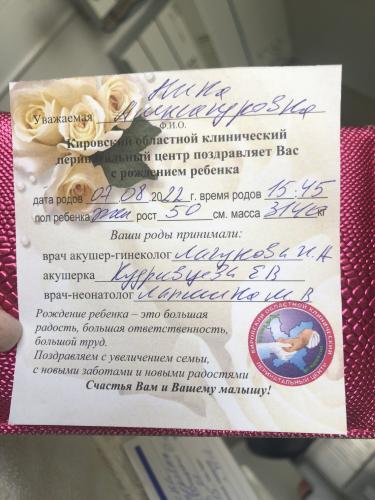 Нина
Уважаемая Александровна
Ф.И.О.
Кировский областной клинический
перинатальный центр поздравляет Вас
с рождением ребенка
дата родов 07 08 2022 г. время родов 15:45
пол ребенка жен рост 50 см. масса 3140 кг
Ваши роды принимали:
врач акушер-гинеколог И.А
акушерка Кудрявцева ЕВ
врач-неонатолог М В
Рождение ребенка – это большая
радость, большая ответственность,
большой труд.
Поздравляем с увеличением семьи,
с новыми заботами и новыми радостями
Счастья Вам и Вашему малышу!
КИРОВСКИЙ ОБЛАСТНОЙ КЛИНИЧЕСКИЙ
ПЕРИНАТАЛЬНЫЙ ЦЕНТР